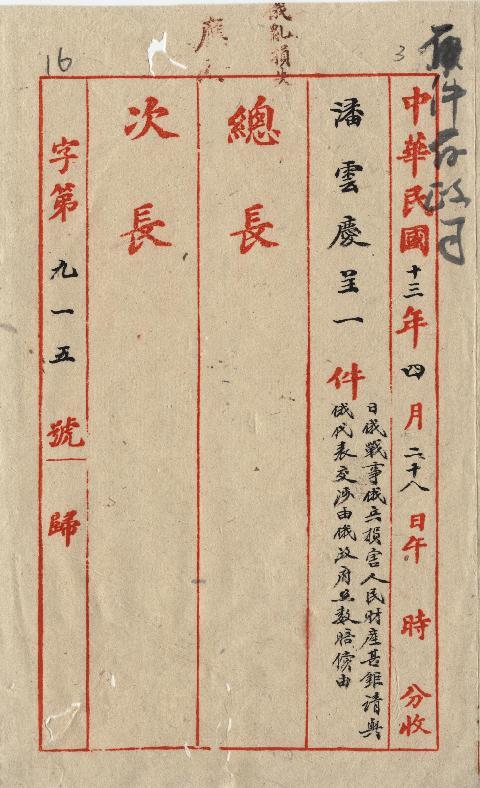 原件存政司
3
中華民國十三年四月二十八日午 時 分收
潘雲慶呈一件
日俄戰事俄兵損害人民財產甚鉅請與
俄代表交涉由俄政府照數賠償由
總長
次長
字第九一五號 歸
俄亂損失
16